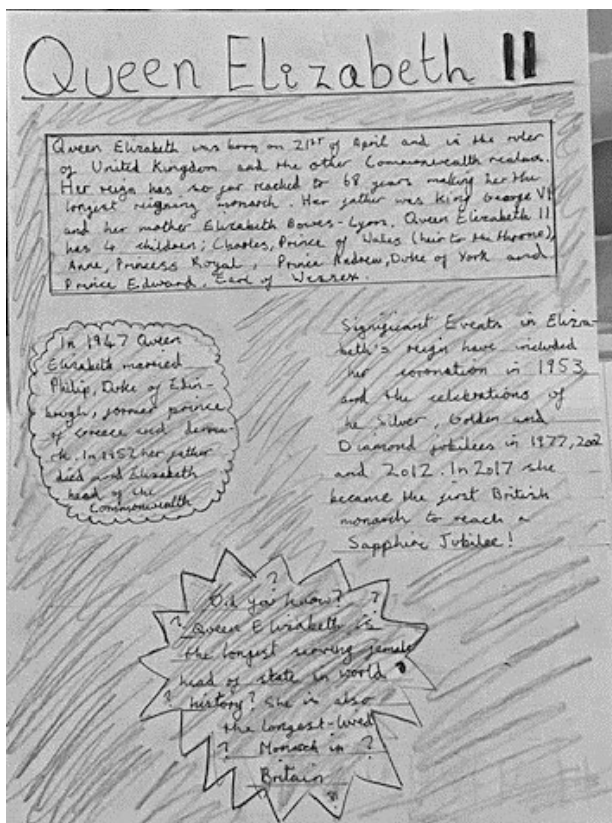 Queen Elizabeth II
Queen Elizabeth was born on 21st of April and is the ruler
of United Kingdom and the other Commonwealth realms.
Her reign has so far reached to 68 years making her the
longest reigning monarch. Her father was King George VI
and her mother Elizabeth Bowes-Lyon. Queen Elizabeth II
has 4 children; Charles, Prince of Wales (heir to the throne),
Anne, Princess Royal, Prince Andrew, Duke of York and
Prince Edward, Earl of Wessex
In 1947 Queen
Elizabeth married
Philip, Duke of Edin-
burgh, former prince
of Greece and denma-
rk. In 1952 her father
died and Elizabeth
head of the
Commonwealth
Significant Events in Eliza-
beth's reign have included
her coronation in 1953
and the celebrations of
he Silver, Golden and
Diamond jubilees in 1977, 2002
and 2012. In 2017 she
became the first British
monarch to reach a
Sapphire Jubilee!
?
Did you know? ?
? Queen Elizabeth is
the longest serving female
head of state in world
? history? She is also
the longest-lived
? Monarch in ?
Britain